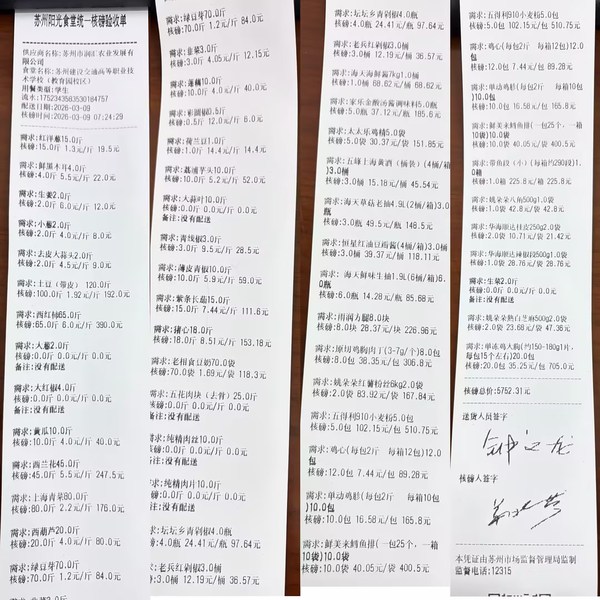 苏州阳光食堂统一核磅验收单
供应商名称:苏州市润区农业发展有
限公司
食堂名称:苏州建设交通高等职业技
术学校(教育园校区)
用餐类型:学生
流水:1752343583530184757
配送日期:2026-03-09
核磅时间:2026-03-09 07:24:29
需求:红洋葱15.0斤
核磅:15.0斤 1.3元/斤 19.5元
需求:鲜黑木耳4.0斤
核磅:4.0斤 5.5元/斤 22.0元
需求:生姜2.0斤
核磅:2.0斤 6.0元/斤 12.0元
需求:小葱2.0斤
核磅:2.0斤 4.0元/斤 8.0元
需求:去皮大蒜头2.0斤
核磅:2.0斤 4.5元/斤 9.0元
需求:土豆(带皮) 120.0斤
核磅:100.0斤 1.92元/斤 192.0元
需求:西红柿65.0斤
核磅:65.0斤 6.0元/斤 390.0元
需求:大葱2.0斤
核磅:0.0斤 0.0元/斤 0.0元
备注:没有配送
需求:大红椒4.0斤
核磅:0.0斤 0.0元/斤 0.0元
备注:没有配送
需求:黄瓜10.0斤
核磅:10.0斤 4.0元/斤 40.0元
需求:西兰花45.0斤
核磅:45.0斤 5.5元/斤 247.5元
需求:上海青菜80.0斤
核磅:80.0斤 2.2元/斤 176.0元
需求:西葫芦20.0斤
核磅:20.0斤 4.0元/斤 80.0元
需求:绿豆芽70.0斤
核磅:70.0斤 1.2元/斤 84.0元
需求:绿豆芽70.0斤
核磅:70.0斤 1.2元/斤 84.0元
需求:韭菜3.0斤
核磅:3.0斤 4.05元/斤 12.15元
需求:莲藕10.0斤
核磅:10.0斤 4.0元/斤 40.0元
核磅:0.5斤 12.0元/斤 6.0元
需求:荷兰豆1.0斤
核磅:1.0斤 14.4元/斤 14.4元
需求:荔浦芋头10.0斤
核磅:10.0斤 5.2元/斤 52.0元
需求:大蒜叶10.0斤
核磅:0.0斤 0.0元/斤 0.0元
备注:没有配送
需求:青线椒3.0斤
核磅:3.0斤 9.5元/斤 28.5元
需求:薄皮青椒10.0斤
核磅:10.0斤 5.9元/斤 59.0元
需求:紫条长茄15.0斤
核磅:15.0斤 7.44元/斤 111.6元
需求:猪心18.0斤
核磅:18.0斤 8.51元/斤 153.18元
需求:老相食豆奶70.0袋
核磅:70.0袋 1.69元/袋 118.3元
需求:五花肉块(去骨)25.0斤
核磅:0.0斤 0.0元/斤 0.0元
备注:没有配送
需求:纯精肉丝10.0斤
核磅:0.0斤 0.0元/斤 0.0元
备注:没有配送
需求:纯精肉片10.0斤
核磅:0.0斤 0.0元/斤 0.0元
备注:没有配送
需求:坛坛乡青剁椒4.0瓶
核磅:4.0瓶 24.41元/瓶 97.64元
需求:老兵红剁椒3.0桶
核磅:3.0桶 12.19元/桶 36.57元
需求:坛坛乡青剁椒4.0瓶
核磅:4.0瓶 24.41元/瓶 97.64元
需求:老兵红剁椒3.0桶
核磅:3.0桶 12.19元/桶 36.57元
需求:海天海鲜酱7kg1.0桶
核磅:1.0桶 68.62元/桶 68.62元
需求:家乐金酸汤酱调味料5.0瓶
核磅:5.0瓶 37.12元/瓶 185.6元
需求:太太乐鸡精5.0袋
核磅:5.0袋 30.37元/袋 151.85元
需求:五峰上海黄酒(桶装)(4桶/箱)
3.0桶
核磅:3.0桶 15.18元/桶 45.54元
需求:海天草菇老抽4.9L(2桶/箱)3.0
瓶
核磅:3.0瓶 49.5元/瓶 148.5元
需求:恒星红油豆瓣酱(4桶/箱)3.0桶
核磅:3.0桶 39.37元/桶 118.11元
需求:海天鲜味生抽1.9L(6桶/箱)6.0
瓶
核磅:6.0瓶 14.28元/瓶 85.68元
需求:雨润方腿8.0块
核磅:8.0块 28.37元/块 226.96元
需求:原切鸡胸肉丁(3-7g/个)8.0包
核磅:8.0包 38.35元/包 306.8元
需求:姚朵朵红薯粉丝6kg2.0袋
核磅:2.0袋 83.92元/袋 167.84元
需求:五得利910小麦粉5.0包
核磅:5.0包 102.15元/包 510.75元
需求:鸡心(每包2斤 每箱12包)12.0
包
核磅:12.0包 7.44元/包 89.28元
需求:单动鸡胗(每包2斤 每箱10包
)10.0包
核磅:10.0包 16.58元/包 165.8元
需求:鲜美来鳕鱼排(一包25个,一箱
10袋)10.0袋
核磅:10.0袋 40.05元/袋 400.5元
需求:五得利910小麦粉5.0包
核磅:5.0包 102.15元/包 510.75元
需求:鸡心(每包2斤 每箱12包)12.0
包
核磅:12.0包 7.44元/包 89.28元
需求:单动鸡胗(每包2斤 每箱10包
)10.0包
核磅:10.0包 16.58元/包 165.8元
需求:鲜美来鳕鱼排(一包25个,一箱
10袋)10.0袋
核磅:10.0袋 40.05元/袋 400.5元
需求:带鱼段(小)(每箱约280段)1.
0箱
核磅:1.0箱 225.8元/箱 225.8元
需求:姚朵朵八角500g1.0袋
核磅:1.0袋 42.8元/袋 42.8元
需求:华海顺达桂皮250g2.0袋
核磅:2.0袋 10.71元/袋 21.42元
需求:华海顺达辣椒段500g1.0袋
核磅:1.0袋 28.76元/袋 28.76元
需求:生菜2.0斤
核磅:0.0斤 0.0元/斤 0.0元
备注:没有配送
需求:姚朵朵熟白芝麻500g2.0袋
核磅:2.0袋 23.68元/袋 47.36元
需求:单冻鸡大胸(约150-180g1片,
每包15个左右)20.0包
核磅:20.0包 35.25元/包 705.0元
核磅总价:5752.31元
送货人员签字
核磅人签字
本凭证由苏州市场监督管理局监制
监督电话:12315